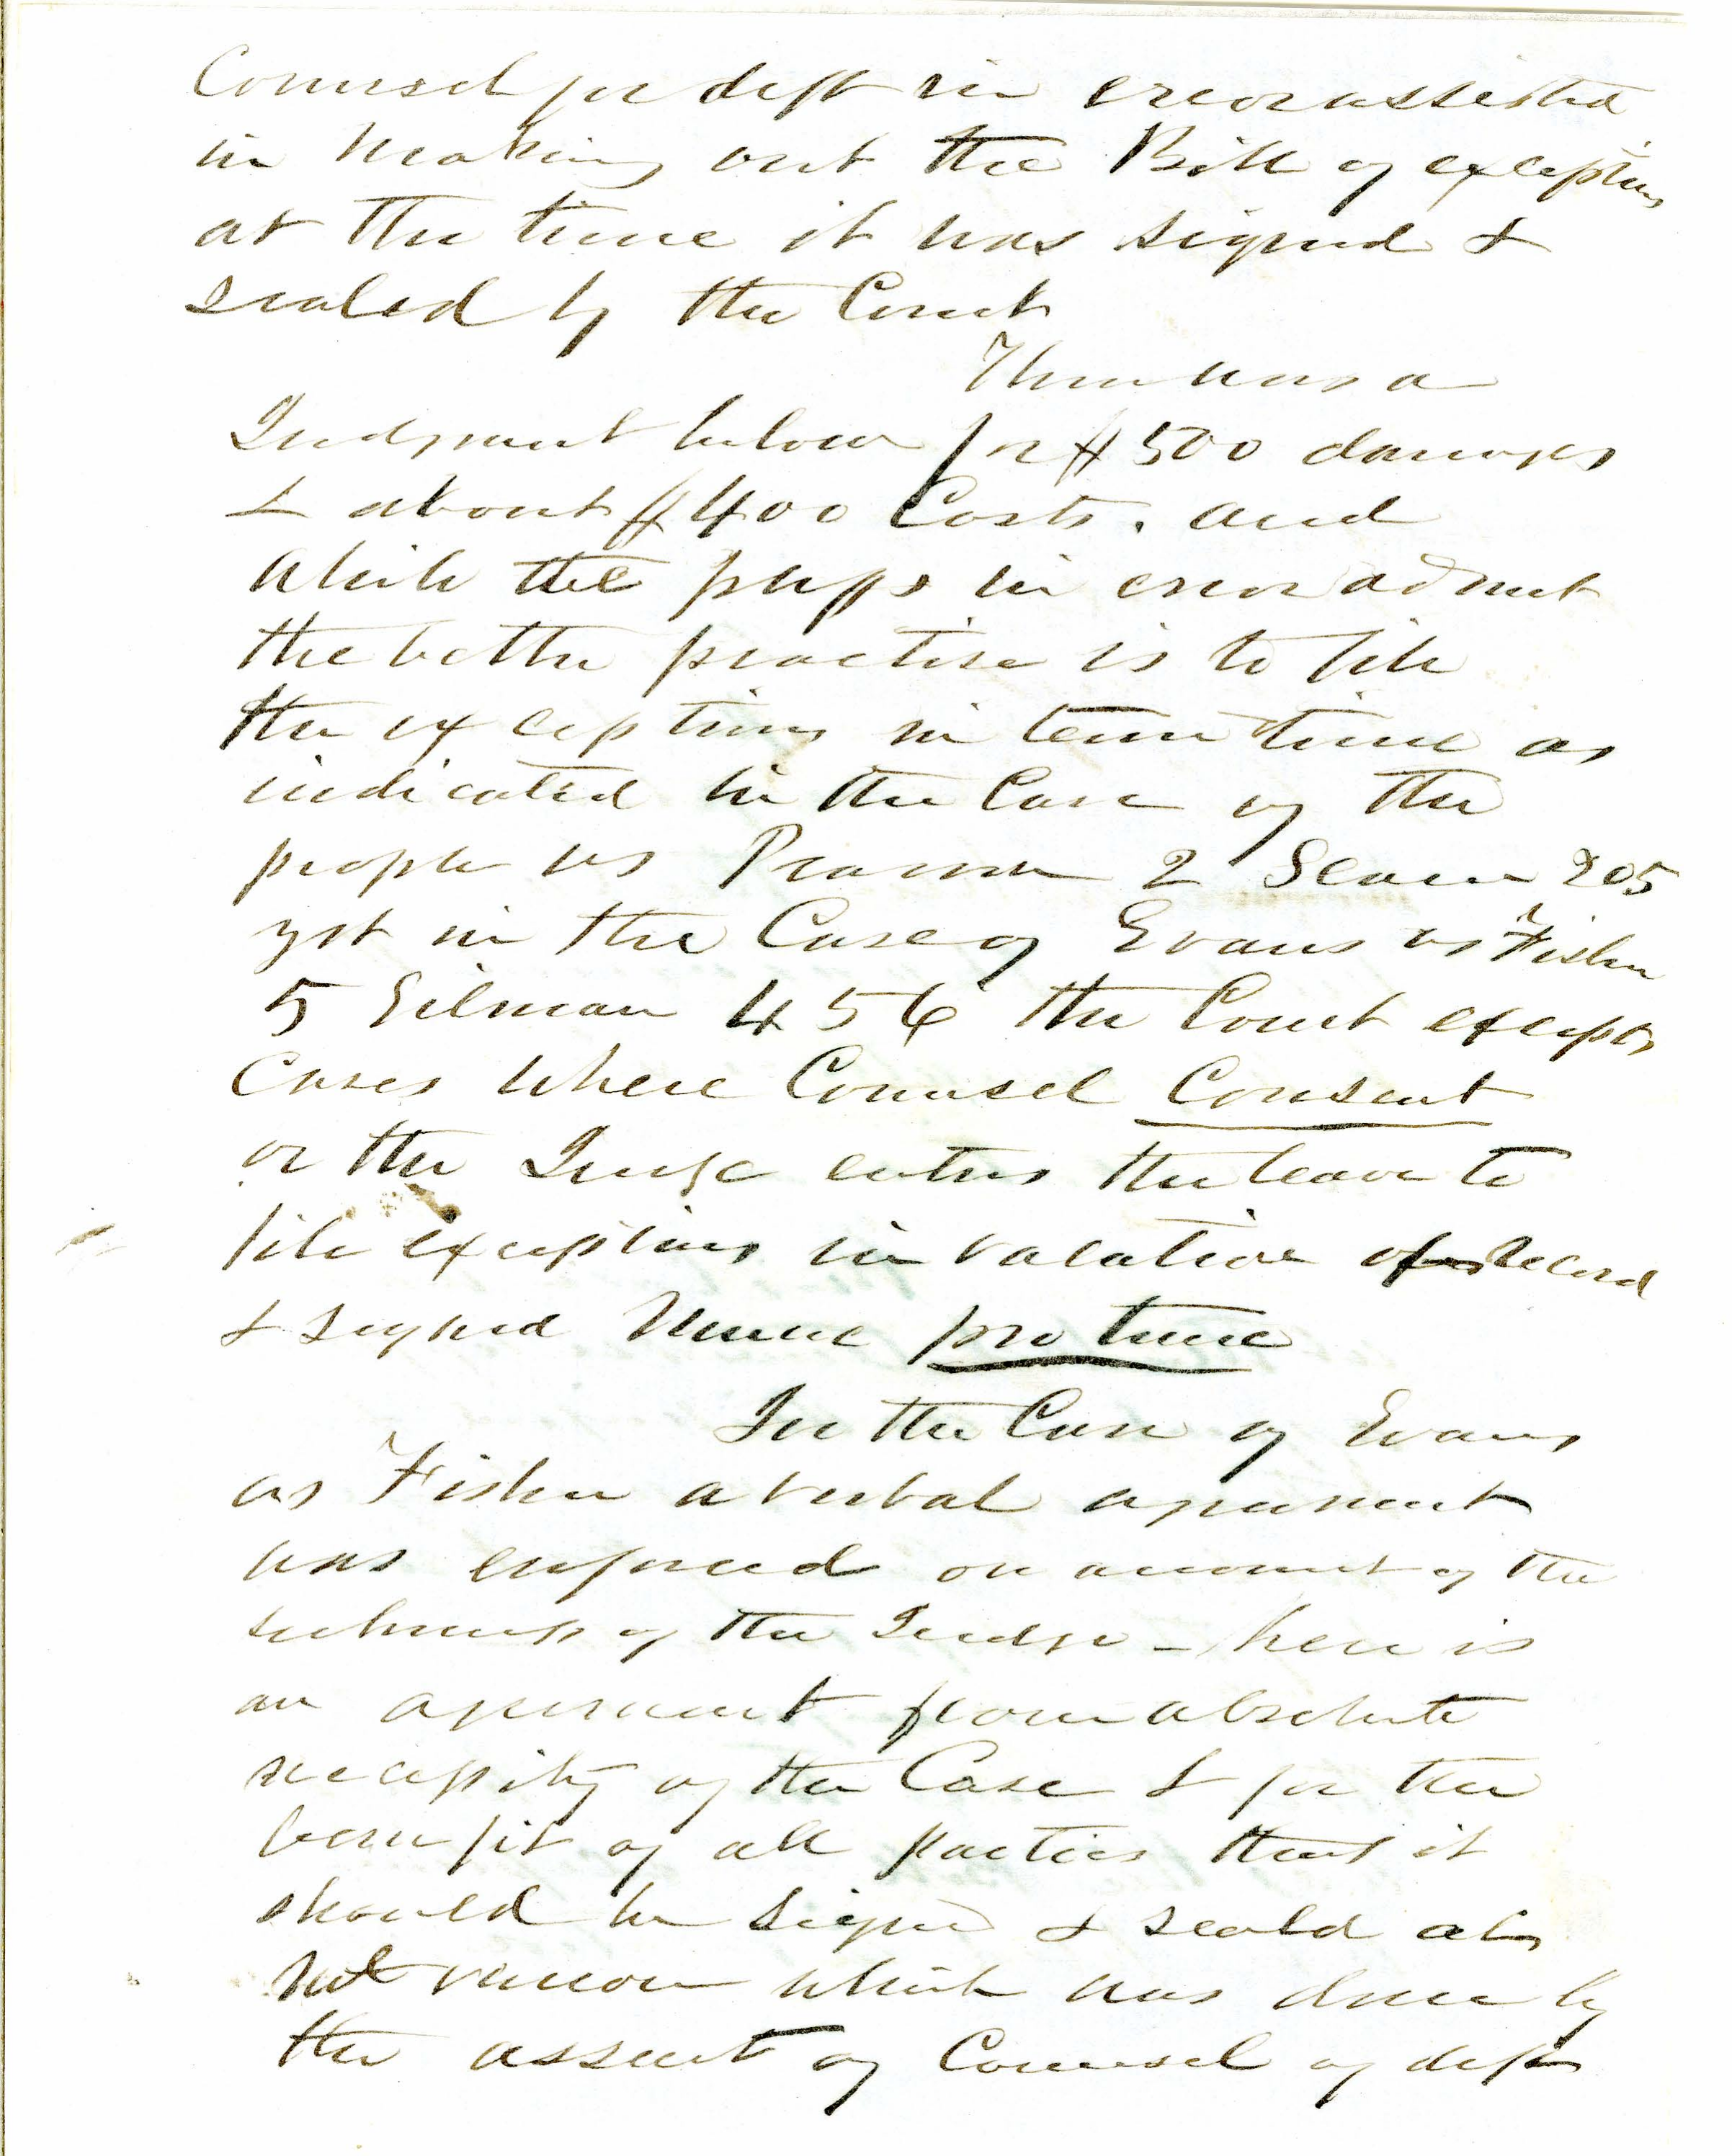 Counsel for deft in error assisted
in making out the Bill of exceptions
at the time it was signed &
sealed by the Court
There was a
Judgment below for $500 damages
& about $400 Costs. and
while the plffs in error admit
the better practise is to file
the exceptions in term time as
indicated in the Case of the
people vs Pearson 2 Scam 205
yet in the Case of Evans vs Fisher
5 Gilman 456 the Court excepts
Cases where Counsel Consent
or the Judge enters the leave to
file exceptions in vacation of Record
& signed Nunc pro tunc
In the Case of Evans
vs Fisher a verbal agreement
was enforced on account of the
sickness of the Judge - here is
an agreement from absolute
necessity of the Case & for the
benefit of all parties that it
should be signed & seald at
which was done by
the assent of Counsel of defts